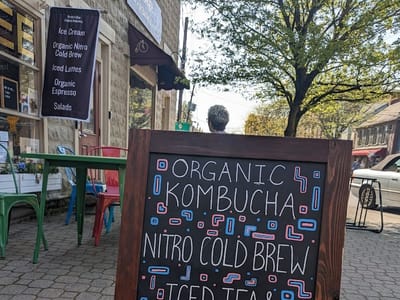 Ice Cream
Organic Nitro
Cold Brew
Iced Lattes
Organic
Espresso
Salads
ORGANIC
KOMBUCHA
NITRO COLD BREW
ICED TEA